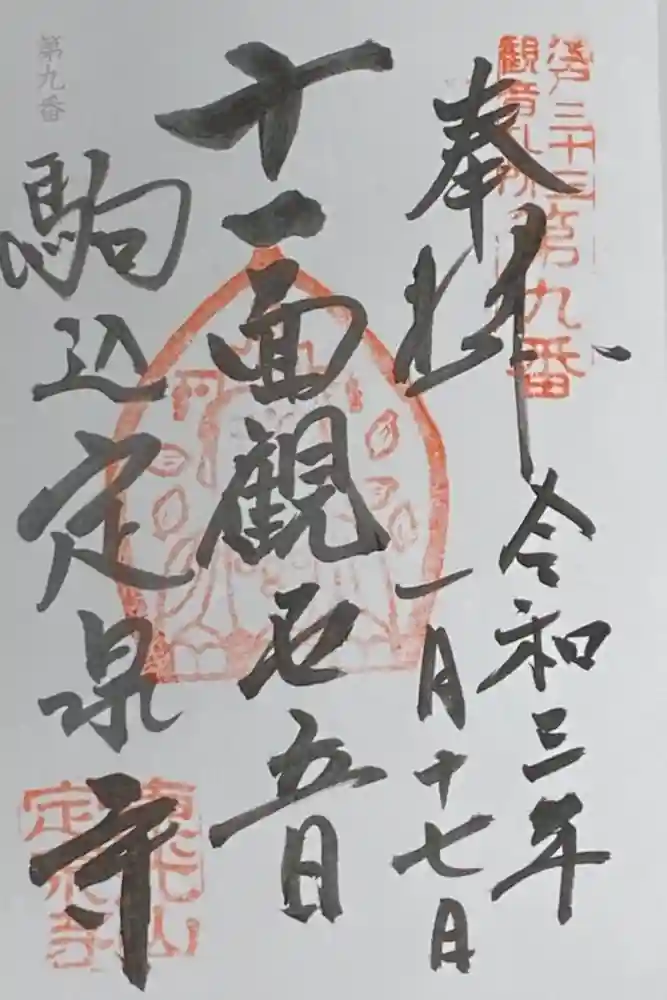 奉拝
令和三年
一月十七日
十一面観世音
駒込定泉寺
第九番
江戸三十三
観音札所
第九番
東光山
定泉寺